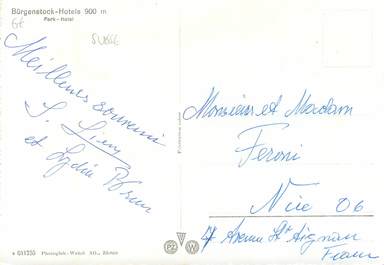 Bürgenstock-Hotels 900 m
Park-Hotel
6f
SUISSE
Meilleurs souvenirs
et Lydia Brun
Monsieur et Madam
Feroni
Nice 06
Avenue St Aignan
France
Photoglob-Wehrli AG., Zürich
PZ W